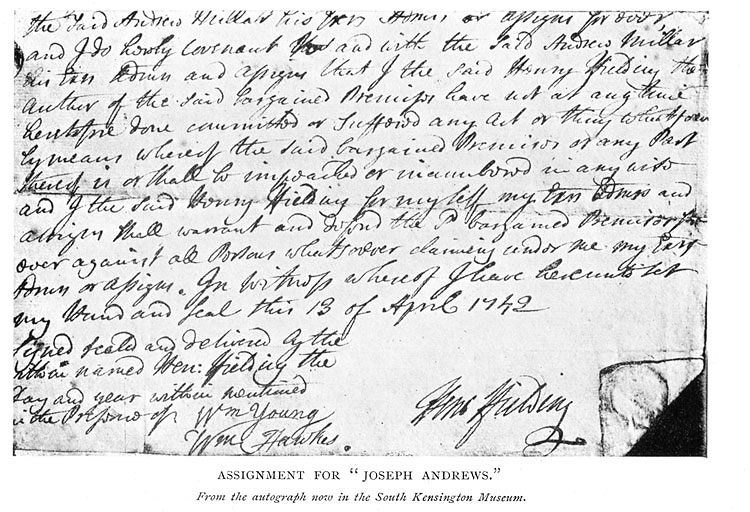 the said Andrew Millar his Exrs Admrs or assigns for ever
and I do hereby covenant to and with the said Andrew Millar
his Exrs Admrs and assigns that I the said Henry Fielding the
Author of the said bargained Premises have not at any time
heretofore done committed or suffered any Act or thing whatsoever
by means whereof the said bargained Premises or any Part
thereof is or shall be impeached or incumbered in any wise
and I the said Henry Fielding for myself my Exrs Admrs and
assigns shall warrant and defend the sd bargained Premises for
ever against all Persons whatsoever claiming under me my Exrs
Admrs or assigns. In witness whereof I have hereunto set
my Hand and seal this 13 of April 1742
Signed sealed and delivered by the
within named Hen: Fielding the
Day and year within mentioned
in the Presence of Wm Young
Wm Hawkes.
Hen: Fielding
ASSIGNMENT FOR "JOSEPH ANDREWS."
From the autograph now in the South Kensington Museum.